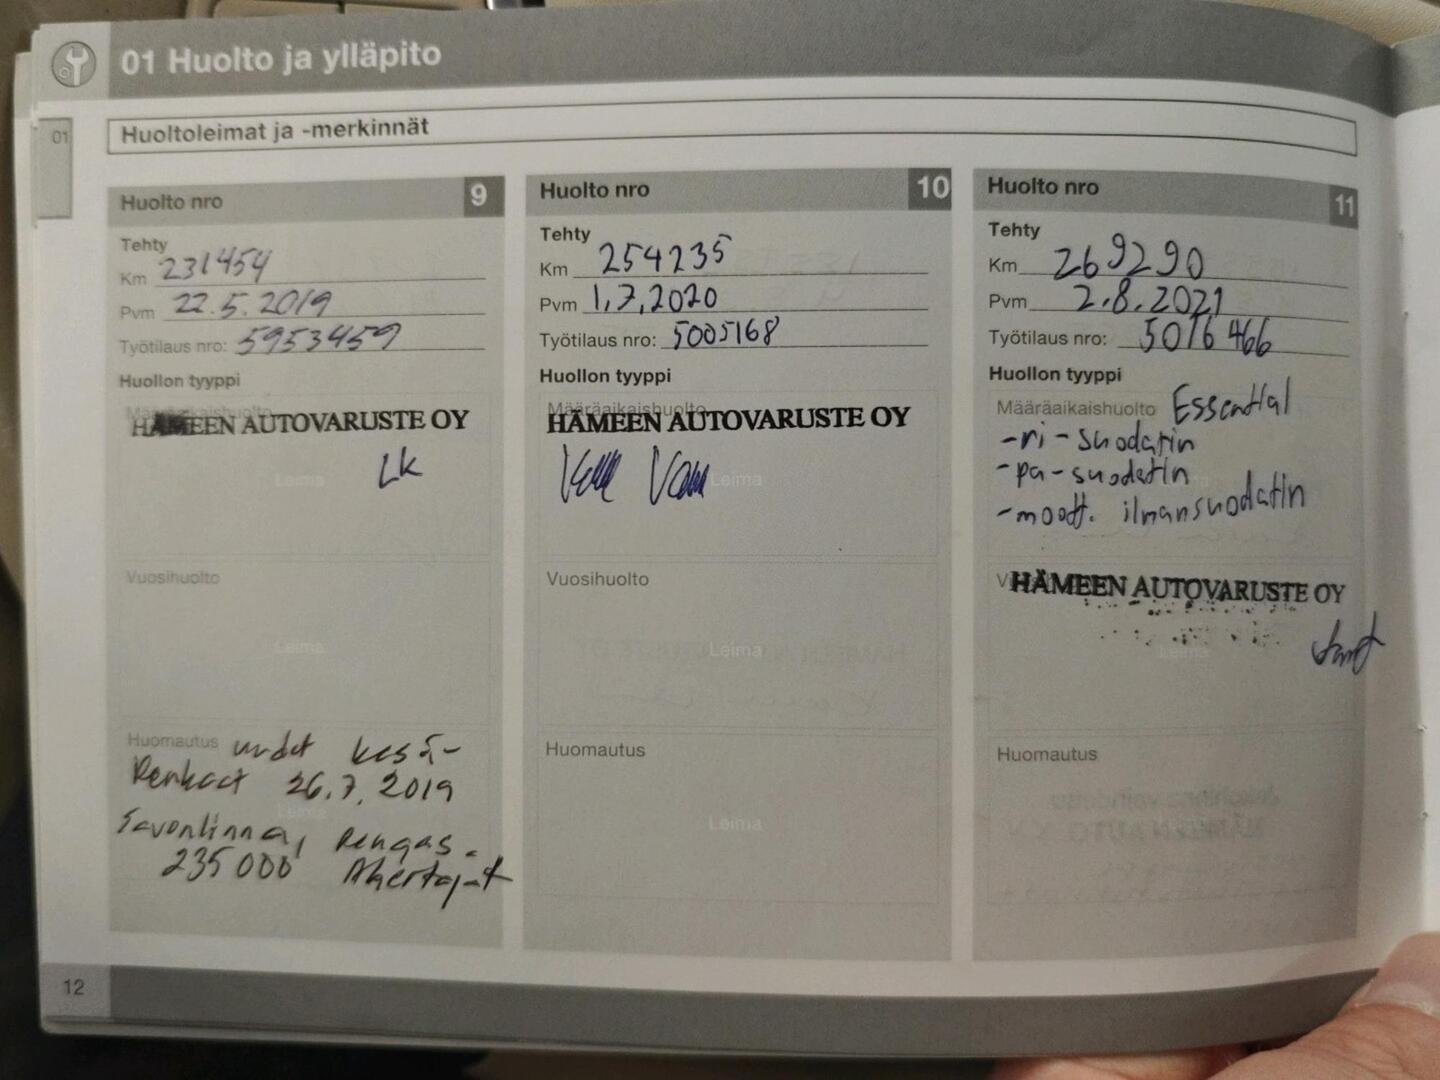 01 Huolto ja ylläpito
01
Huoltoleimat ja -merkinnät
Huolto nro 9
Tehty
Km 231454
Pvm 22.5.2019
Työtilaus nro: 5953459
Huollon tyyppi
Määräaikaishuolto
HÄMEEN AUTOVARUSTE OY
LK
Leima
Vuosihuolto
Leima
Huomautus uudet kesä-
Renkaat 26.7.2019
Savonlinna, Rengas-
235000 Ahertajat
Leima
12
Huolto nro 10
Tehty
Km 254235
Pvm 1.7.2020
Työtilaus nro: 5005168
Huollon tyyppi
Määräaikaishuolto
HÄMEEN AUTOVARUSTE OY
Leima
Vuosihuolto
Leima
Huomautus
Leima
Huolto nro 11
Tehty
Km 269290
Pvm 2.8.2021
Työtilaus nro: 5016466
Huollon tyyppi
Määräaikaishuolto Essential
-ri-suodatin
-pa-suodatin
-moott. ilmansuodatin
HÄMEEN AUTOVARUSTE OY
Leima
Huomautus